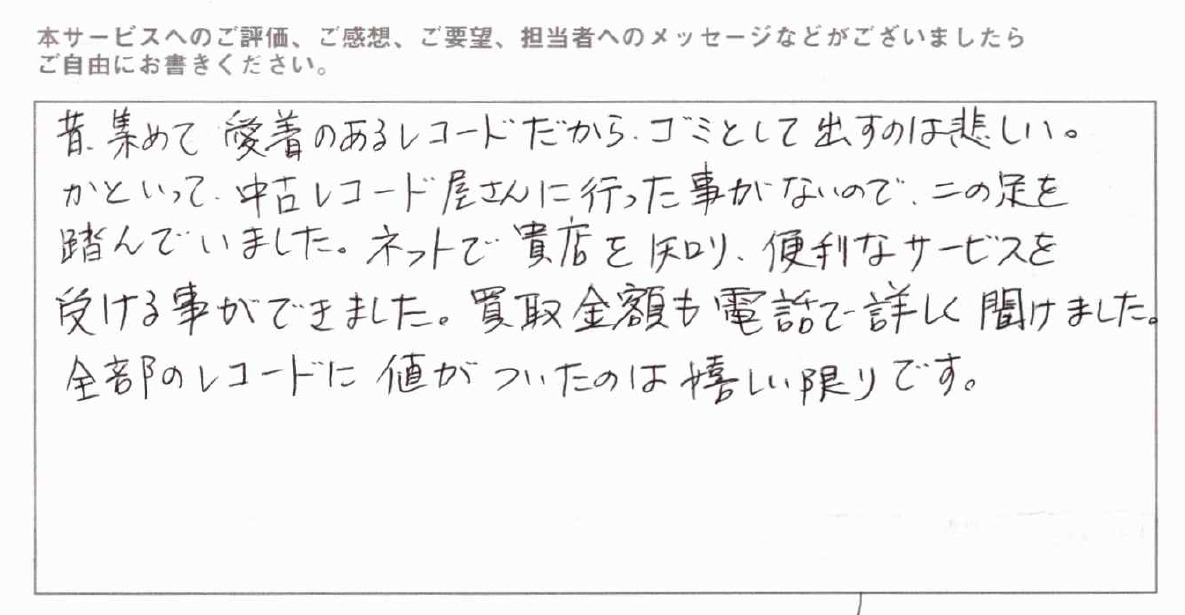 本サービスへのご評価、ご感想、ご要望、担当者へのメッセージなどがございましたら
ご自由にお書きください。
昔、集めて愛着のあるレコードだから、ゴミとして出すのは悲しい。
かといって、中古レコード屋さんに行った事がないので、二の足を
踏んでいました。ネットで貴店を知り、便利なサービスを
受ける事ができました。買取金額も電話で詳しく聞けました。
全部のレコードに値がついたのは嬉しい限りです。